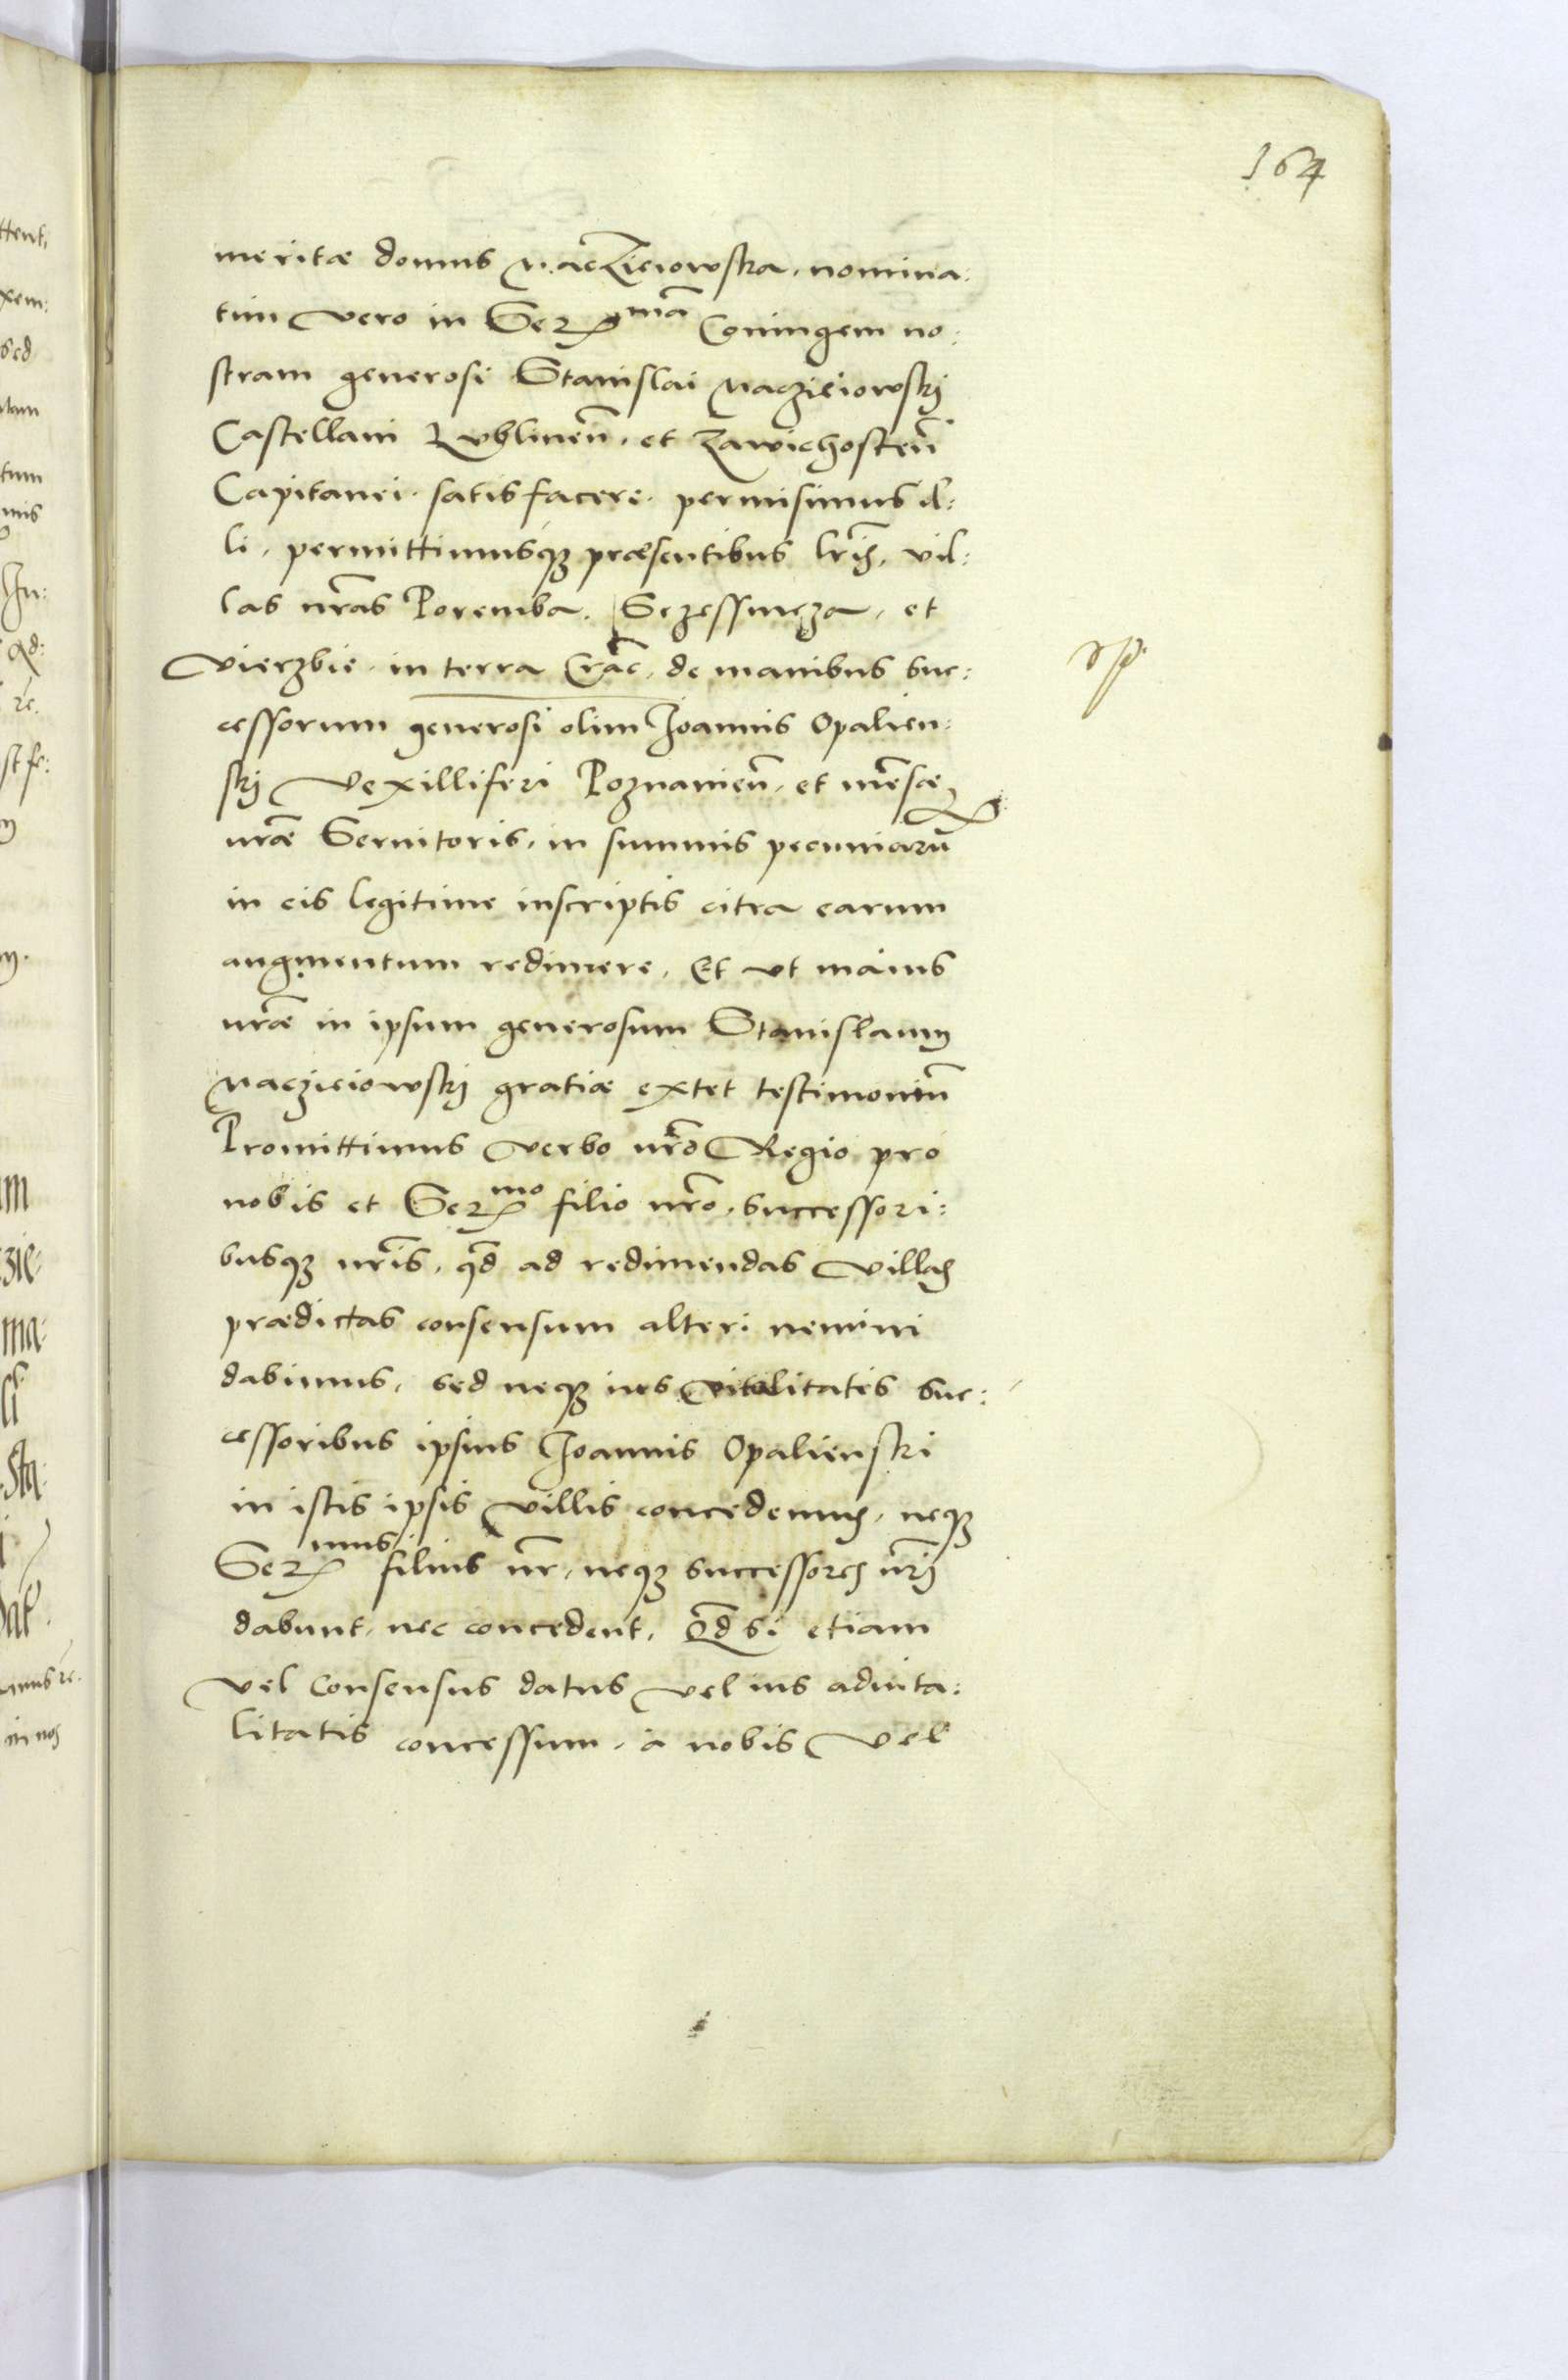 164
meritæ domus Maczieiowska, nomina:
tim vero in Ser^mã Coniugem no:
stram generosi Stanislai Maczieiowskij
Castellani Lublineñ. et Zawichosteñ
Capitanei satisfacere. permisimus il:
li, permittimusq; præsentibus lris, vil:
las nras Poremba. et
Vierzbie in terra Crac. de manibus suc:
cessorum generosi olim Joannis Opalien:
skij Vexilliferi Poznanieñ. et mensæ
nræ Seruitoris, in summis pecuniarũ
in eis legitime inscriptis citra earum
augmentum redimere. Et vt maius
nræ in ipsum generosum Stanislaum
Maczieiowskij gratiæ extet testimoniũ
Promittimus verbo nro Regio pro
nobis et Ser^mo filio nro, successori:
busq; nris, qd ad redimendas villas
prædictas consensum alteri nemini
dabimus, sed neq; ius vitalitatis suc:
cessoribus ipsius Joannis Opalienski
in istis ipsis villis concedemus, neq;
Ser^mus filius nr, neq; successores nri
dabunt, nec concedent. Qd si etiam
vel Consensus datus vel ius aduita:
litatis concessum, à nobis vel